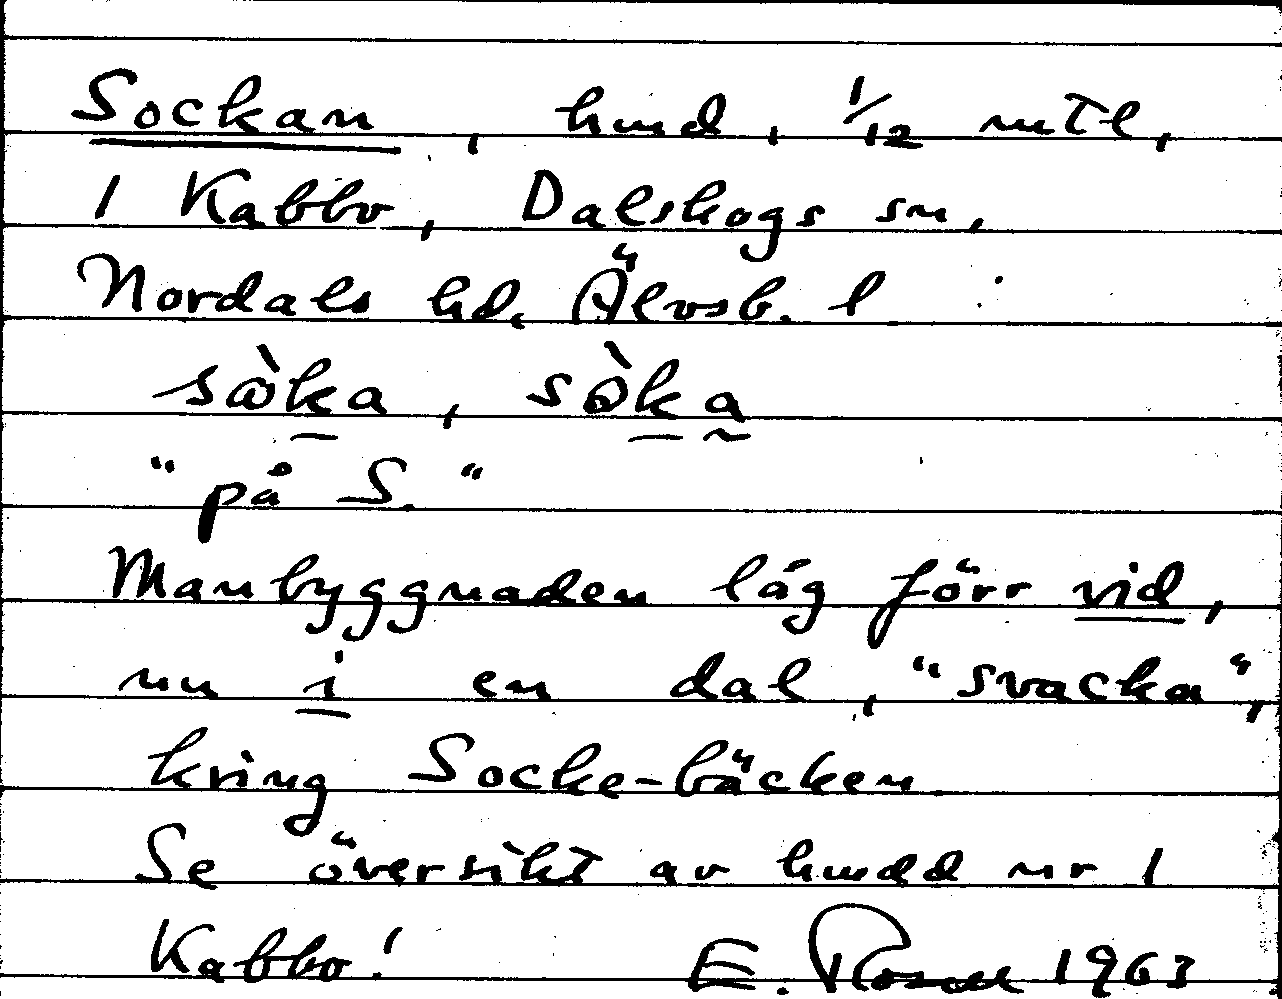 Sockan, hmd, 1/12 mtl,
1 Kabbo, Dalskogs sn,
Nordals hd. Älvsb. l
sòka, sòka
"på S."
Manbyggnaden låg förr vid,
nu i en dal, "svacka",
kring Socke-bäcken.
Se översikt av hmdd nr 1
Kabbo! E. Rosell 1963